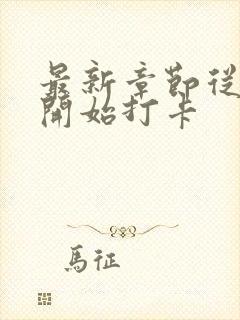 最新章節從
開始打卡
馬征